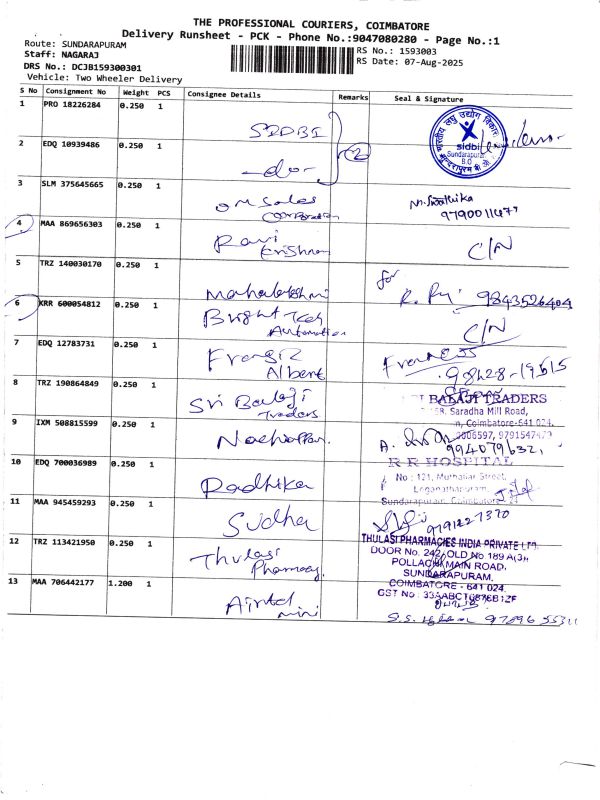 THE PROFESSIONAL COURIERS, COIMBATORE
Delivery Runsheet - PCK - Phone No.:9047080280 - Page No.:1
Route: SUNDARAPURAM
RS No.: 1593003
Staff: NAGARAJ
RS Date: 07-Aug-2025
DRS No.: DCJB159300301
Vehicle: Two Wheeler Delivery
S No Consignment No Weight PCS Consignee Details Remarks Seal & Signature
1 PRO 18226284 0.250 1 SIDBI
sidbi
Sundarapuram
B.O
2 EDQ 10939486 0.250 1 -do- 2
3 SLM 375645665 0.250 1 OM Sales
Corporation
9790011477
4 MAA 869656303 0.250 1 Ravi
Krishnan
C/N
5 TRZ 140030170 0.250 1 Mahalakshmi
for
9843526404
6 KRR 600054812 0.250 1 Bright Tech
Automation
C/N
7 EDQ 12783731 0.250 1 Frangiz
Albert
98428-19515
8 TRZ 190864849 0.250 1 Sri Balaji
Traders
BALAJI TRADERS
168, Saradha Mill Road,
Coimbatore-641 024.
9 IXM 508815599 0.250 1
994079632,
10 EDQ 700036989 0.250 1 Radhika
R R HOSPITAL
No : 121, Muthaliar Street,
Loganathapuram,
Sundarapuram, Coimbatore
11 MAA 945459293 0.250 1 Sudha
9791227370
12 TRZ 113421950 0.250 1 Thulasi
Pharmacy
THULASI PHARMACIES INDIA PRIVATE LTD.
DOOR No. 242, OLD No.189 A(3),
POLLACHI MAIN ROAD,
SUNDARAPURAM.
COIMBATORE - 641 024.
13 MAA 706442177 1.200 1 Airtel
mini